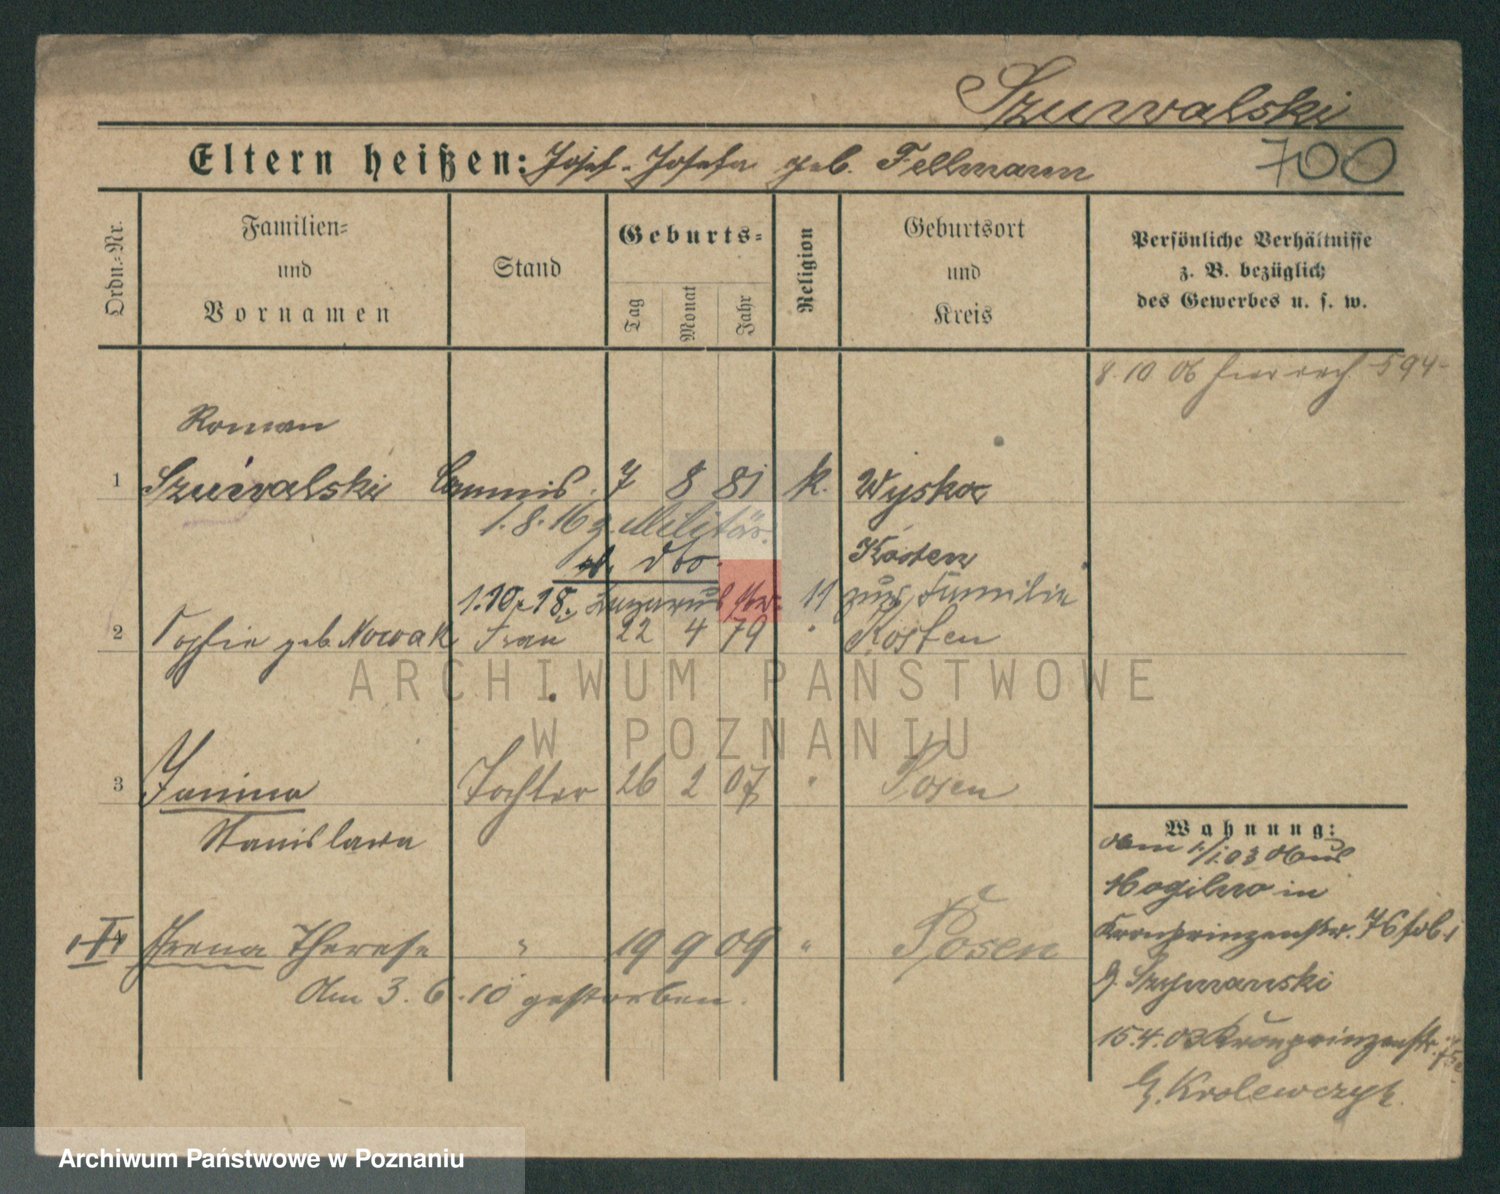 Szuwalski
Eltern heißen: Josef - Josefa geb. Fellmann 700
Ordn.-Nr.
Familien-
und
Vornamen
Stand
Geburts-
Tag
Monat
Jahr
Religion
Geburtsort
und
Kreis
Persönliche Verhältnisse
z. B. bezüglich
des Gewerbes u. s. w.
8.10 06
Roman
1 Szuwalski Commis. 7 8 81 k. Wyskoc
1.8.16 z. Militär.
Kosten
1.10.18. 11 zur Familie
2 Sophie geb. Nowak Frau 22 4 79 " Kosten
ARCHIWUM PAŃSTWOWE
W POZNANIU
3 Janina Tochter 26 2 07 " Posen
Stanislawa
Wohnung:
Mogilno in
Kronprinzenstr. 76
b. Szymanski
15.4.03 Kronprinzenstr.
b. Krolewczyk
Irena Therese " 19 9 09 " Posen
Am 3.6.10 gestorben.
Archiwum Państwowe w Poznaniu